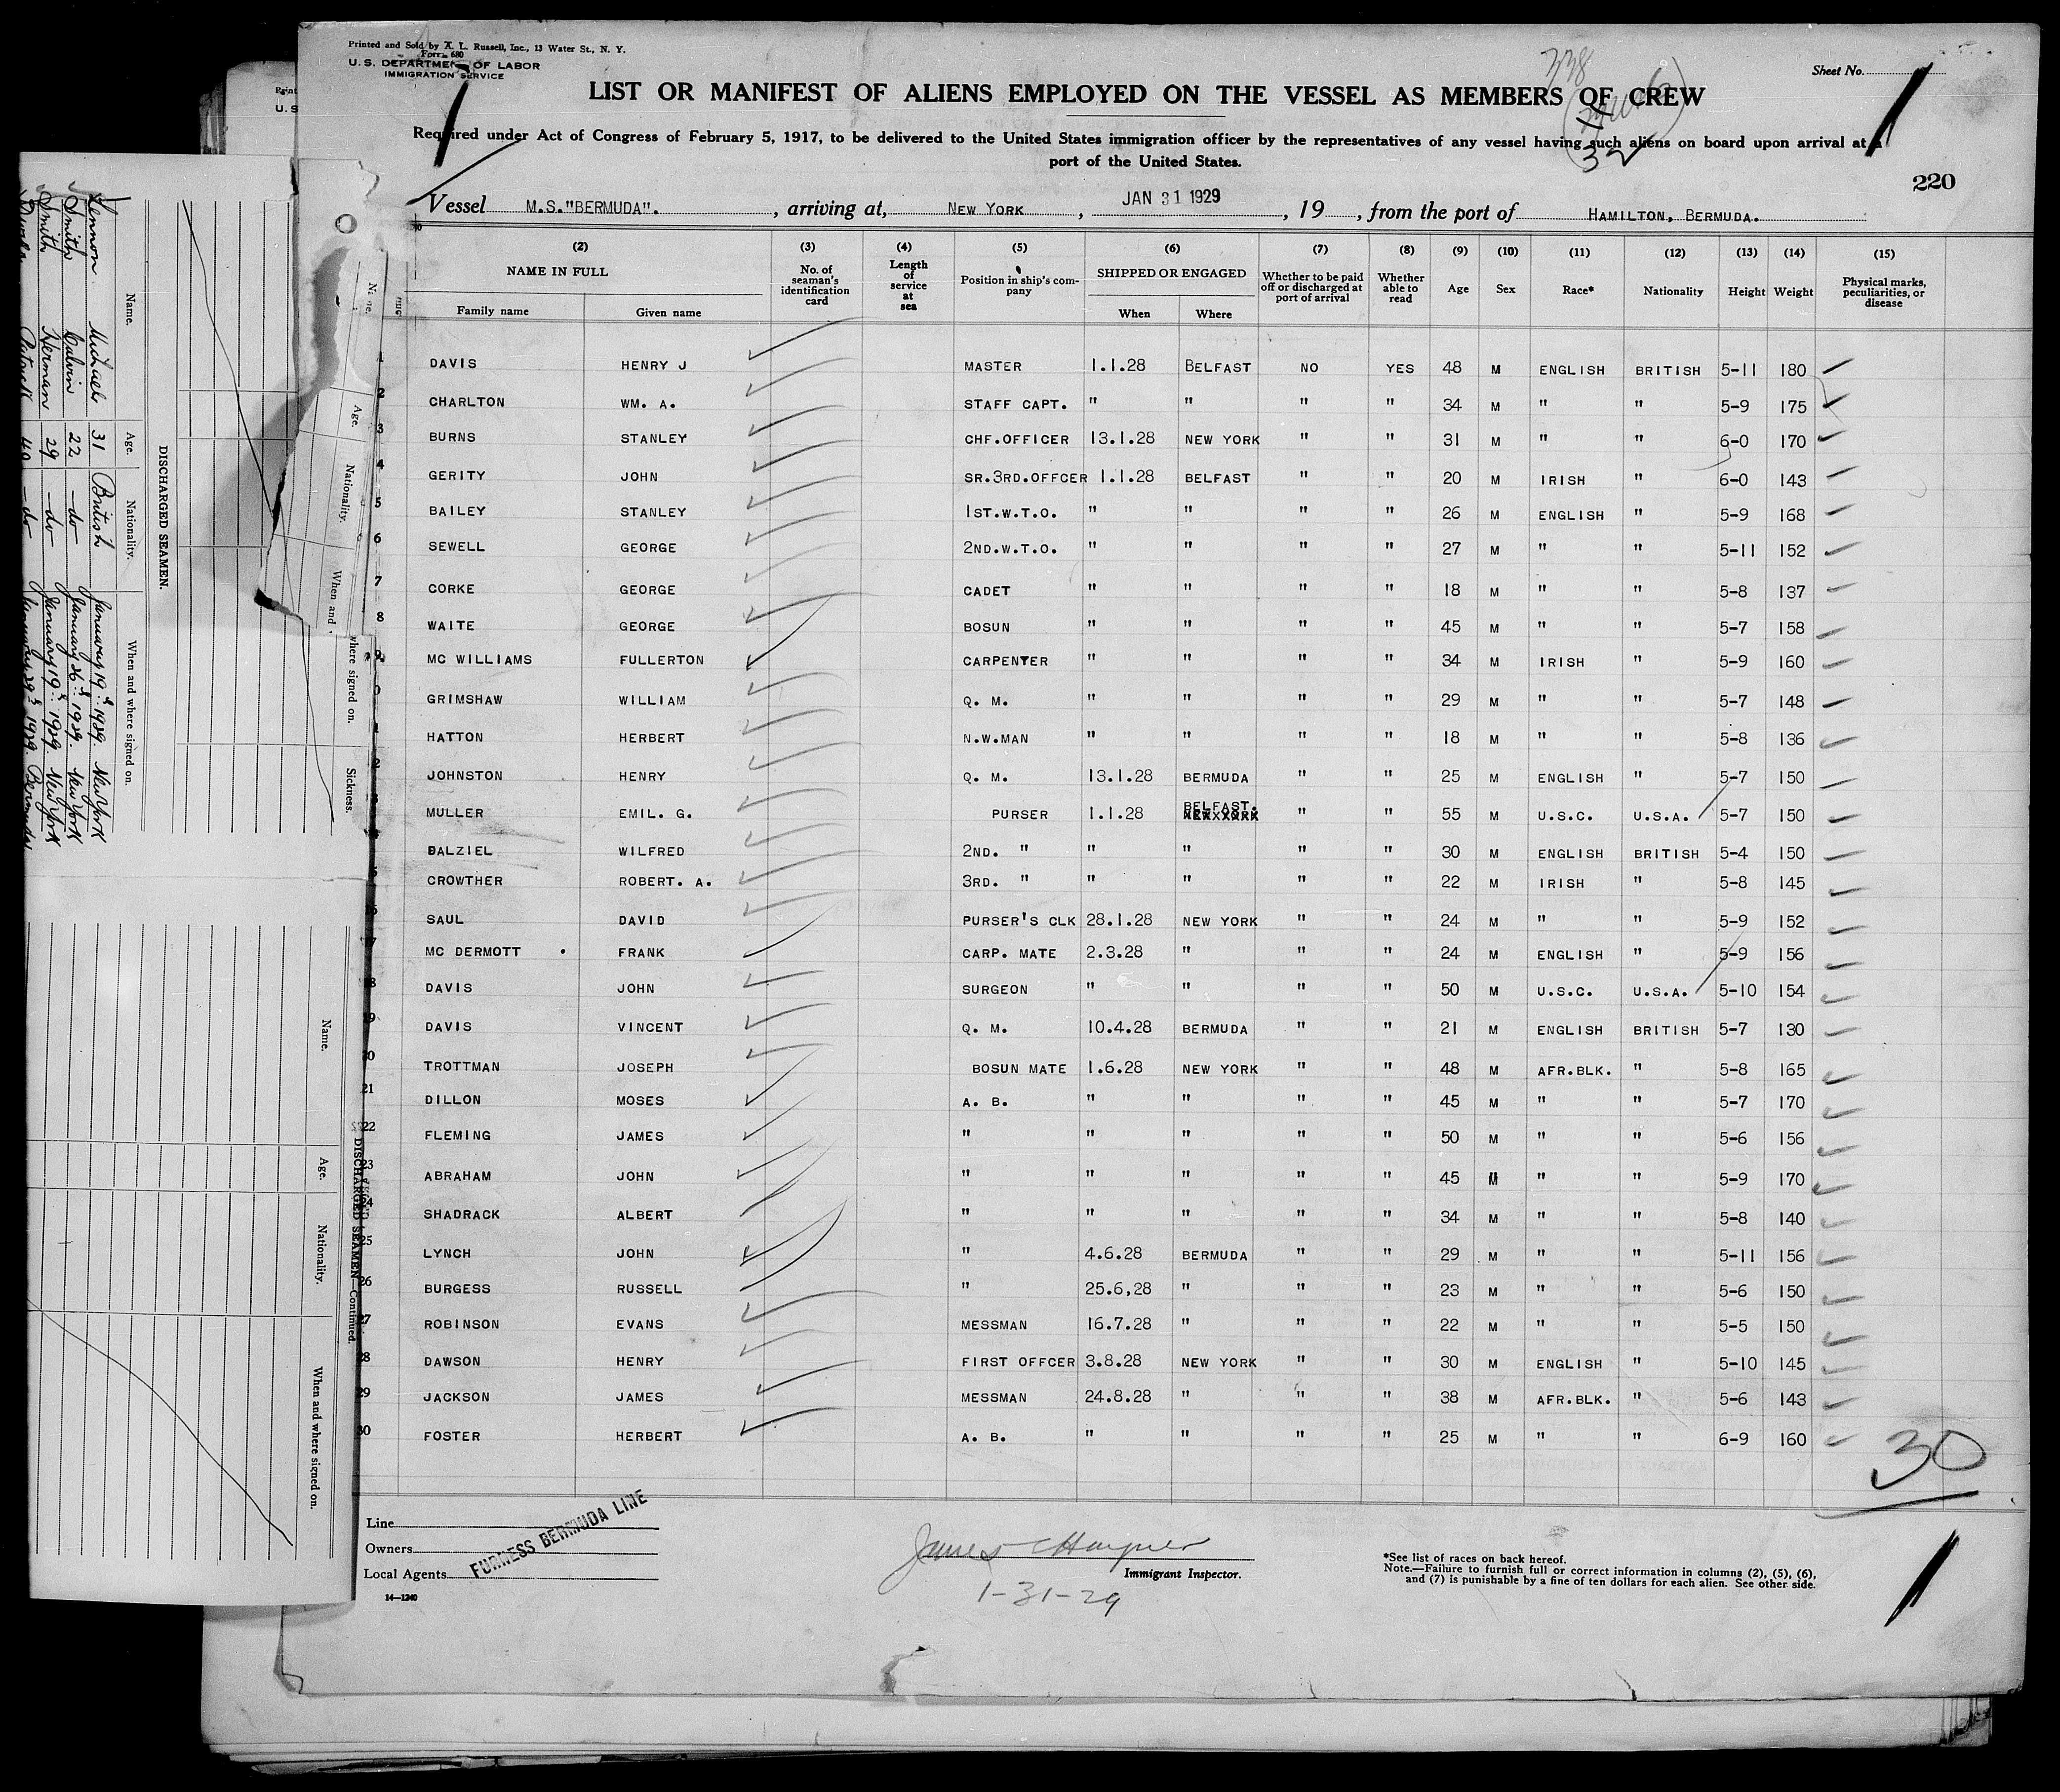 Printed and Sold by A. L. Russell, Inc., 13 Water St., N. Y.
Form 680
U. S. DEPARTMENT OF LABOR
IMMIGRATION SERVICE
338
Sheet No.
LIST OR MANIFEST OF ALIENS EMPLOYED ON THE VESSEL AS MEMBERS OF CREW
Required under Act of Congress of February 5, 1917, to be delivered to the United States immigration officer by the representatives of any vessel having such aliens on board upon arrival at a
port of the United States.
32
220
Vessel M.S."BERMUDA". , arriving at, NEW YORK , JAN 31 1929 , 19 , from the port of HAMILTON, BERMUDA.
(2) (3) (4) (5) (6) (7) (8) (9) (10) (11) (12) (13) (14) (15)
NAME IN FULL No. of seaman's identification card Length of service at sea Position in ship's company SHIPPED OR ENGAGED Whether to be paid off or discharged at port of arrival Whether able to read Age Sex Race* Nationality Height Weight Physical marks, peculiarities, or disease
Family name Given name When Where
1 DAVIS HENRY J MASTER 1.1.28 BELFAST NO YES 48 M ENGLISH BRITISH 5-11 180
2 CHARLTON WM. A. STAFF CAPT. " " " " 34 M " " 5-9 175
3 BURNS STANLEY CHF.OFFICER 13.1.28 NEW YORK " " 31 M " " 6-0 170
4 GERITY JOHN SR.3RD.OFFCER 1.1.28 BELFAST " " 20 M IRISH " 6-0 143
5 BAILEY STANLEY 1ST.W.T.O. " " " " 26 M ENGLISH " 5-9 168
6 SEWELL GEORGE 2ND.W.T.O. " " " " 27 M " " 5-11 152
7 CORKE GEORGE CADET " " " " 18 M " " 5-8 137
8 WAITE GEORGE BOSUN " " " " 45 M " " 5-7 158
9 MC WILLIAMS FULLERTON CARPENTER " " " " 34 M IRISH " 5-9 160
0 GRIMSHAW WILLIAM Q. M. " " " " 29 M " " 5-7 148
1 HATTON HERBERT N.W.MAN " " " " 18 M " " 5-8 136
2 JOHNSTON HENRY Q. M. 13.1.28 BERMUDA " " 25 M ENGLISH " 5-7 150
3 MULLER EMIL. G. PURSER 1.1.28 BELFAST. " " 55 M U.S.C. U.S.A. 5-7 150
4 DALZIEL WILFRED 2ND. " " " " " 30 M ENGLISH BRITISH 5-4 150
5 CROWTHER ROBERT. A. 3RD. " " " " " 22 M IRISH " 5-8 145
16 SAUL DAVID PURSER'S CLK 28.1.28 NEW YORK " " 24 M " " 5-9 152
17 MC DERMOTT FRANK CARP. MATE 2.3.28 " " " 24 M ENGLISH " 5-9 156
18 DAVIS JOHN SURGEON " " " " 50 M U.S.C. U.S.A. 5-10 154
19 DAVIS VINCENT Q. M. 10.4.28 BERMUDA " " 21 M ENGLISH BRITISH 5-7 130
20 TROTTMAN JOSEPH BOSUN MATE 1.6.28 NEW YORK " " 48 M AFR.BLK. " 5-8 165
21 DILLON MOSES A. B. " " " " 45 M " " 5-7 170
22 FLEMING JAMES " " " " " 50 M " " 5-6 156
23 ABRAHAM JOHN " " " " " 45 M " " 5-9 170
24 SHADRACK ALBERT " " " " " 34 M " " 5-8 140
25 LYNCH JOHN " 4.6.28 BERMUDA " " 29 M " " 5-11 156
26 BURGESS RUSSELL " 25.6,28 " " " 23 M " " 5-6 150
27 ROBINSON EVANS MESSMAN 16.7.28 " " " 22 M " " 5-5 150
28 DAWSON HENRY FIRST OFFCER 3.8.28 NEW YORK " " 30 M ENGLISH " 5-10 145
29 JACKSON JAMES MESSMAN 24.8.28 " " " 38 M AFR.BLK. " 5-6 143
30 FOSTER HERBERT A. B. " " " " 25 M " " 6-9 160
30
Line
Owners
Local Agents
FURNESS BERMUDA LINE
14—1240
Immigrant Inspector.
1-31-29
*See list of races on back hereof.
Note.—Failure to furnish full or correct information in columns (2), (5), (6),
and (7) is punishable by a fine of ten dollars for each alien. See other side.
DISCHARGED SEAMEN.
Name. Age. Nationality. When and where signed on.
Lennon Michael 31 British January 19th 1929. New York
Smith Calvin 22 —do— January 26th 1929. New York
Smith Herman 29 —do— January 19th 1929. New York
Patrick 40 —do— January 29th 1929. Bermuda
Age. Nationality. When and where signed on. Sickness.
DISCHARGED SEAMEN—Continued.
Name. Age. Nationality. When and where signed on.